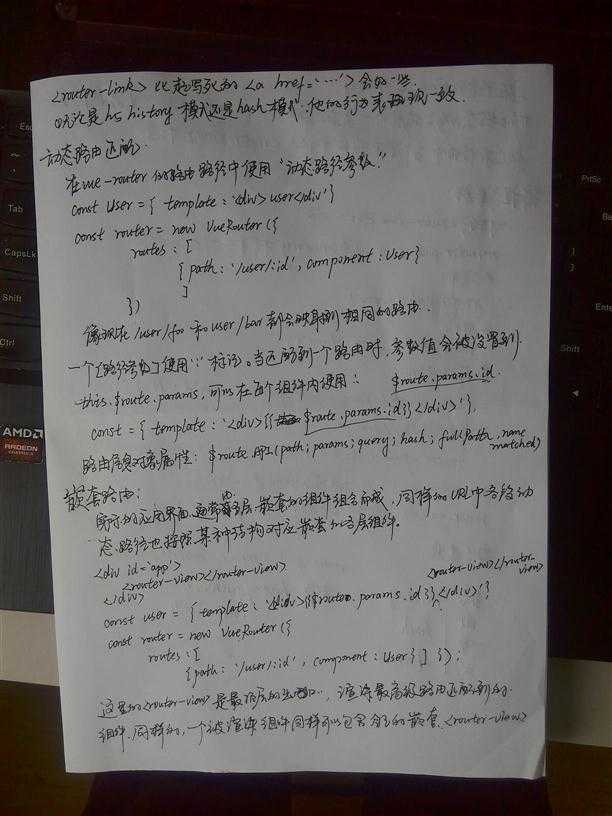 <router-link> 比起写死的 <a href='...'> 会好一些.
①无论是h5 history 模式还是hash模式.他的行为表现一致.
动态路由匹配
在vue-router 的路由路径中使用"动态路径参数"
const User = { template : '<div> user</div'}
const router = new VueRouter ({
routes : [
{ path : '/user/:id' , component : User}
]
})
像现在 /user/foo 和 user/bar 都会映射到相同的路由.
一个[路径参数]使用":"标记。当匹配到一个路由时,参数值会被设置到
this.$route.params, 可以在每个组件内使用: $route.params.id.
const = { template : '<div>{{ $route.params.id}}</div>'},
路由信息对象属性: $route API(path; params; query; hash; fullPath, name
matched)
嵌套路由:
实际的应用界面,通常由多层嵌套的组件组合而成,同样的URL中各段动
态路径也按照某种结构对应嵌套的各层组件。
<div id='app'>
<router-view></router-view>
</div>
<router-view></router-
view>
const user = { template : '<div>{{$route. params.id}}</div>'}
const router = new VueRouter ({
routes : [
{path : '/user/:id' , component : User} ] });
这里的<router-view> 是最顶层的出口, 渲染最高级路由匹配到的
组件.同样的,一个被渲染组件同样可以包含自己的嵌套.<router-view>
Esc
Tab
CapsLk
Shift
Ctrl
AMD
RADEON
PrtSc
Shift